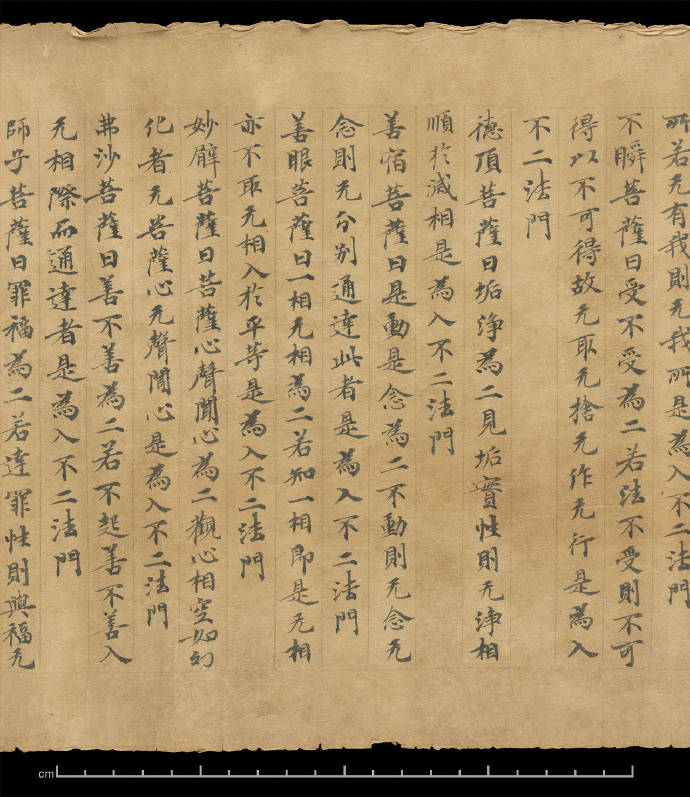 所若无有我則无我所是為入不二法門
不瞬菩薩曰受不受為二若法不受則不可
得以不可得故无取无捨无作无行是為入
不二法門
德頂菩薩曰垢淨為二見垢實性則无淨相
順於滅相是為入不二法門
善宿菩薩曰是動是念為二不動則无念无
念則无分別通達此者是為入不二法門
善眼菩薩曰一相无相為二若知一相即是无相
亦不取无相入於平等是為入不二法門
妙臂菩薩曰菩薩心聲聞心為二觀心相空如幻
化者无菩薩心无聲聞心是為入不二法門
弗沙菩薩曰善不善為二若不起善不善入
无相際而通達者是為入不二法門
師子菩薩曰罪福為二若達罪性則與福无
cm